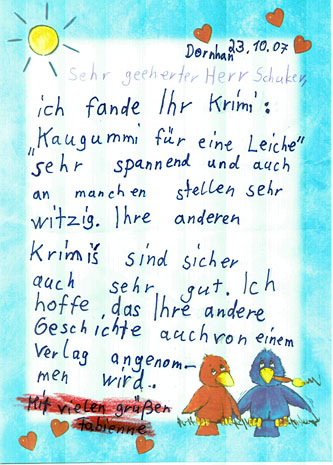 Dornhan 23.10.07
Sehr geeherter Herr Schuker,
ich fande Ihr Krimi:
„Kaugummi für eine Leiche"
sehr spannend und auch
an manchen stellen sehr
witzig. Ihre anderen
Krimis sind sicher
auch sehr gut. Ich
hoffe, das Ihre andere
Geschichte auch von einem
Verlag angenom-
men wird.
Mit vielen grüßen
fabienne